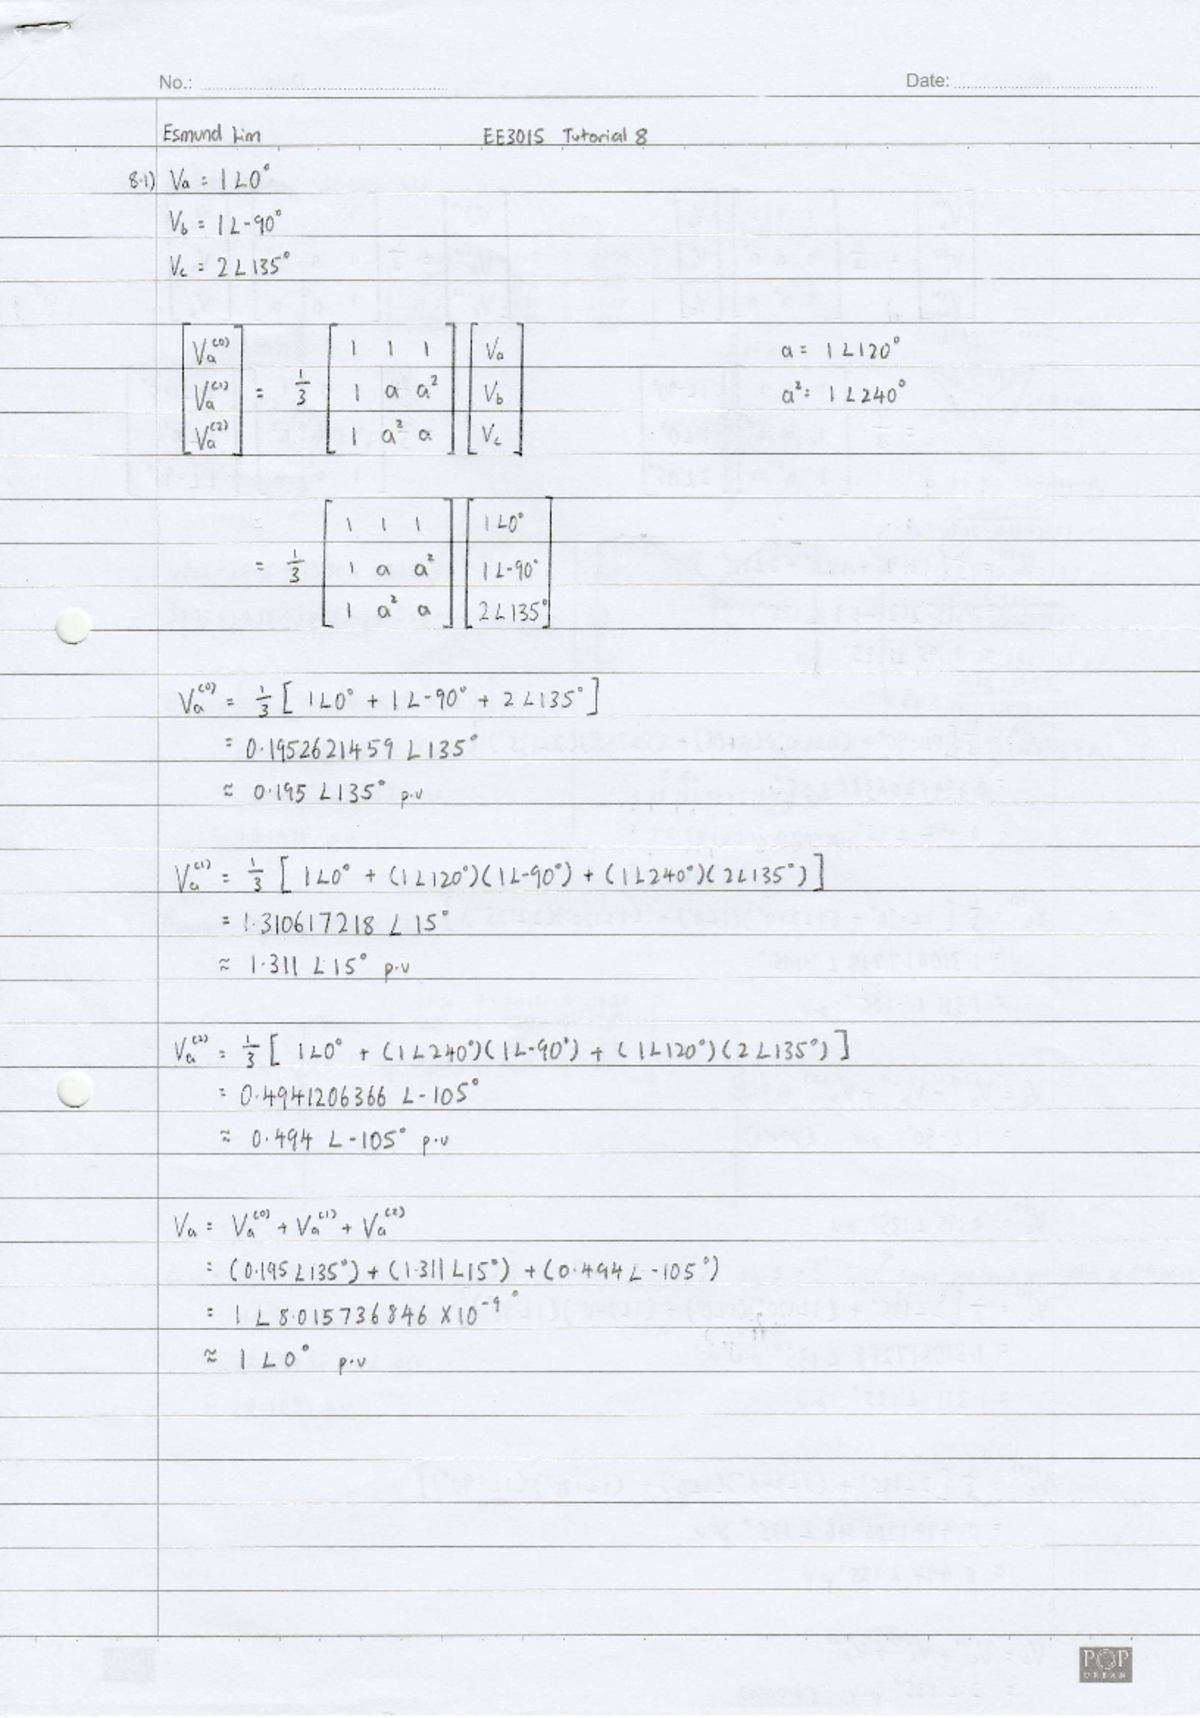 No.: Date:
Esmund Lim EE3015 Tutorial 8
8.1) Va = 1∠0°
Vb = 1∠-90°
Vc = 2∠135°
[Va⁽⁰⁾] [1 1 1] [Va] a = 1∠120°
[Va⁽¹⁾] = 1/3 [1 a a²] [Vb] a² = 1∠240°
[Va⁽²⁾] [1 a² a] [Vc]
[1 1 1] [1∠0°]
= 1/3 [1 a a²] [1∠-90°]
[1 a² a] [2∠135°]
Va⁽⁰⁾ = 1/3 [ 1∠0° + 1∠-90° + 2∠135° ]
= 0.1952621459 ∠135°
≈ 0.195 ∠135° p.u
Va⁽¹⁾ = 1/3 [ 1∠0° + (1∠120°)(1∠-90°) + (1∠240°)(2∠135°) ]
= 1.310617218 ∠15°
≈ 1.311 ∠15° p.u
Va⁽²⁾ = 1/3 [ 1∠0° + (1∠240°)(1∠-90°) + (1∠120°)(2∠135°) ]
= 0.4941206366 ∠-105°
≈ 0.494 ∠-105° p.u
Va = Va⁽⁰⁾ + Va⁽¹⁾ + Va⁽²⁾
= (0.195∠135°) + (1.311∠15°) + (0.494∠-105°)
= 1∠8.015736846 X10⁻⁹°
≈ 1∠0° p.u
POP
URBAN